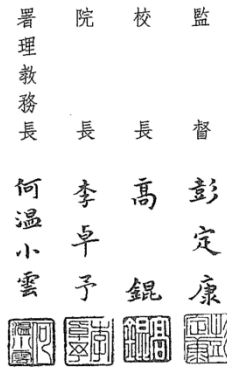 監督 彭定康
校長 高錕
院長 李卓予
署理教務長 何溫小雲